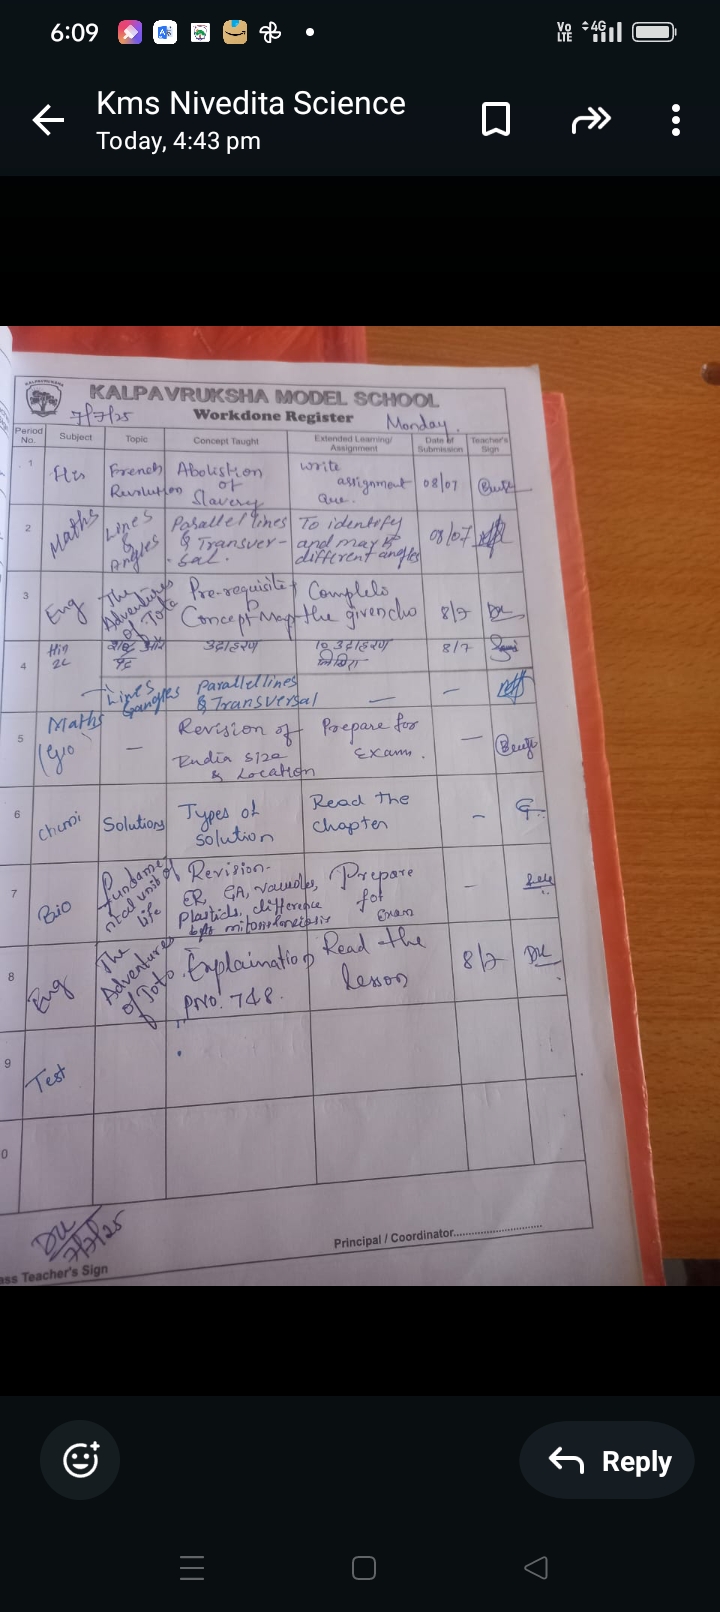 6:09
Vo LTE 4G
Kms Nivedita Science
Today, 4:43 pm
KALPAVRUKSHA
KALPAVRUKSHA MODEL SCHOOL
7/7/25 Workdone Register Monday.
Period No. Subject Topic Concept Taught Extended Learning/ Assignment Date of Submission Teacher's Sign
1 His French Abolistion write
Revolution of assignment 08/07
Slavery que.
2 Maths Lines Parallel lines To identify
& & Transver- and 08/07
Angles sal. different angles
3 Eng The Pre-requisite Complete
Adventures Concept Map the given 8/7
of Toto
4 Hin शब्द और उदाहरण 10 उदाहरण 8/7
2L पद
Maths Lines Parallel lines
& angles & Transversal — —
5 Geo — Revision of Prepare for —
India size Exam.
& Location
6 Chemi Solutions Types of Read the –
solution chapter
7 Bio Fundame Revision- Prepare –
ntal unit of ER, GA, vacuoles, for
life plastids, difference Exam
8 Eng The Explaination Read the 8/7
Adventures PNO. 7&8. lesson
of Toto
9 Test
0
7/7/25
ass Teacher's Sign
Principal / Coordinator..............................
Reply